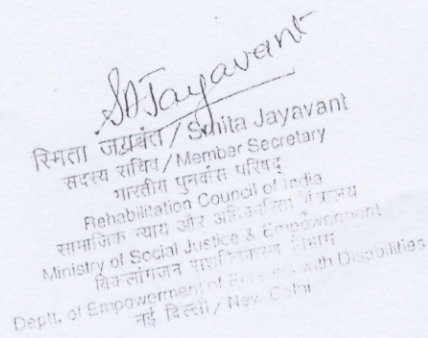 SDJayavant
स्मिता जयवंत / Smita Jayavant
सदस्य सचिव / Member Secretary
भारतीय पुनर्वास परिषद्
Rehabilitation Council of India
सामाजिक न्याय और अधिकारिता मंत्रालय
Ministry of Social Justice & Empowerment
विकलांगजन सशक्तिकरण विभाग
Deptt. of Empowerment of Persons with Disabilities
नई दिल्ली / New Delhi